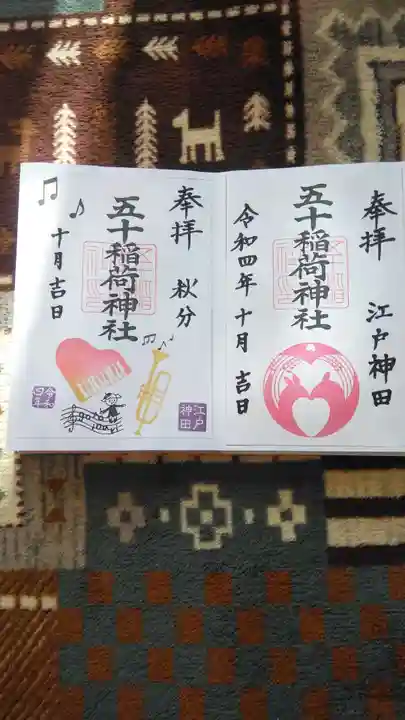 奉拝
江戸神田
五十稲荷神社
令和四年十月吉日
奉拝
秋分
五十稲荷神社
十月吉日
江戸
神田